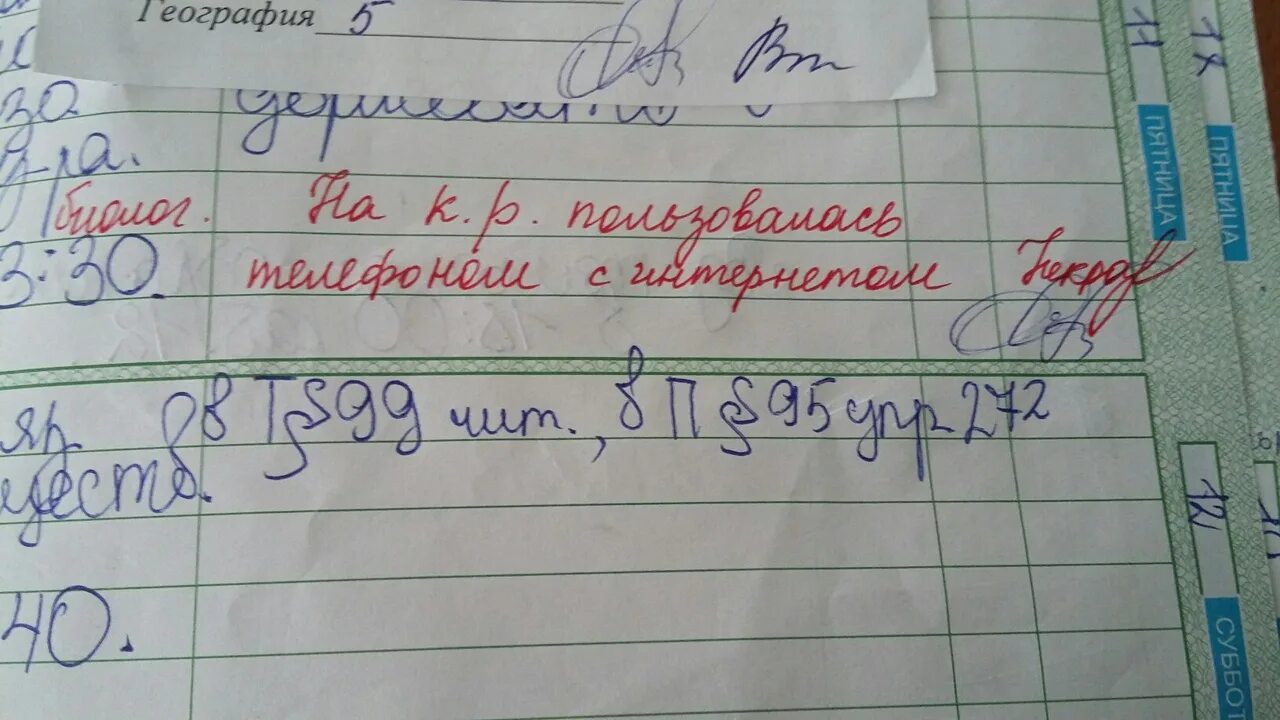 География 5
зо
биолог. На к.р. пользовалась
3:30. телефоном с интернетом
в Т§99 чит., в П§95 упр 272
40.
11
ПЯТНИЦА
ПЯТНИЦА
12
СУББОТ